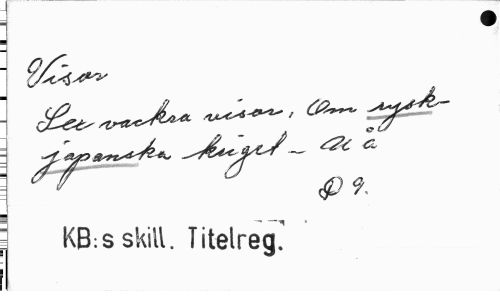 Visor
Sex vackra visor, Om rysk-
japanska kriget - u å
P 9.
KB:s skill. Titelreg.